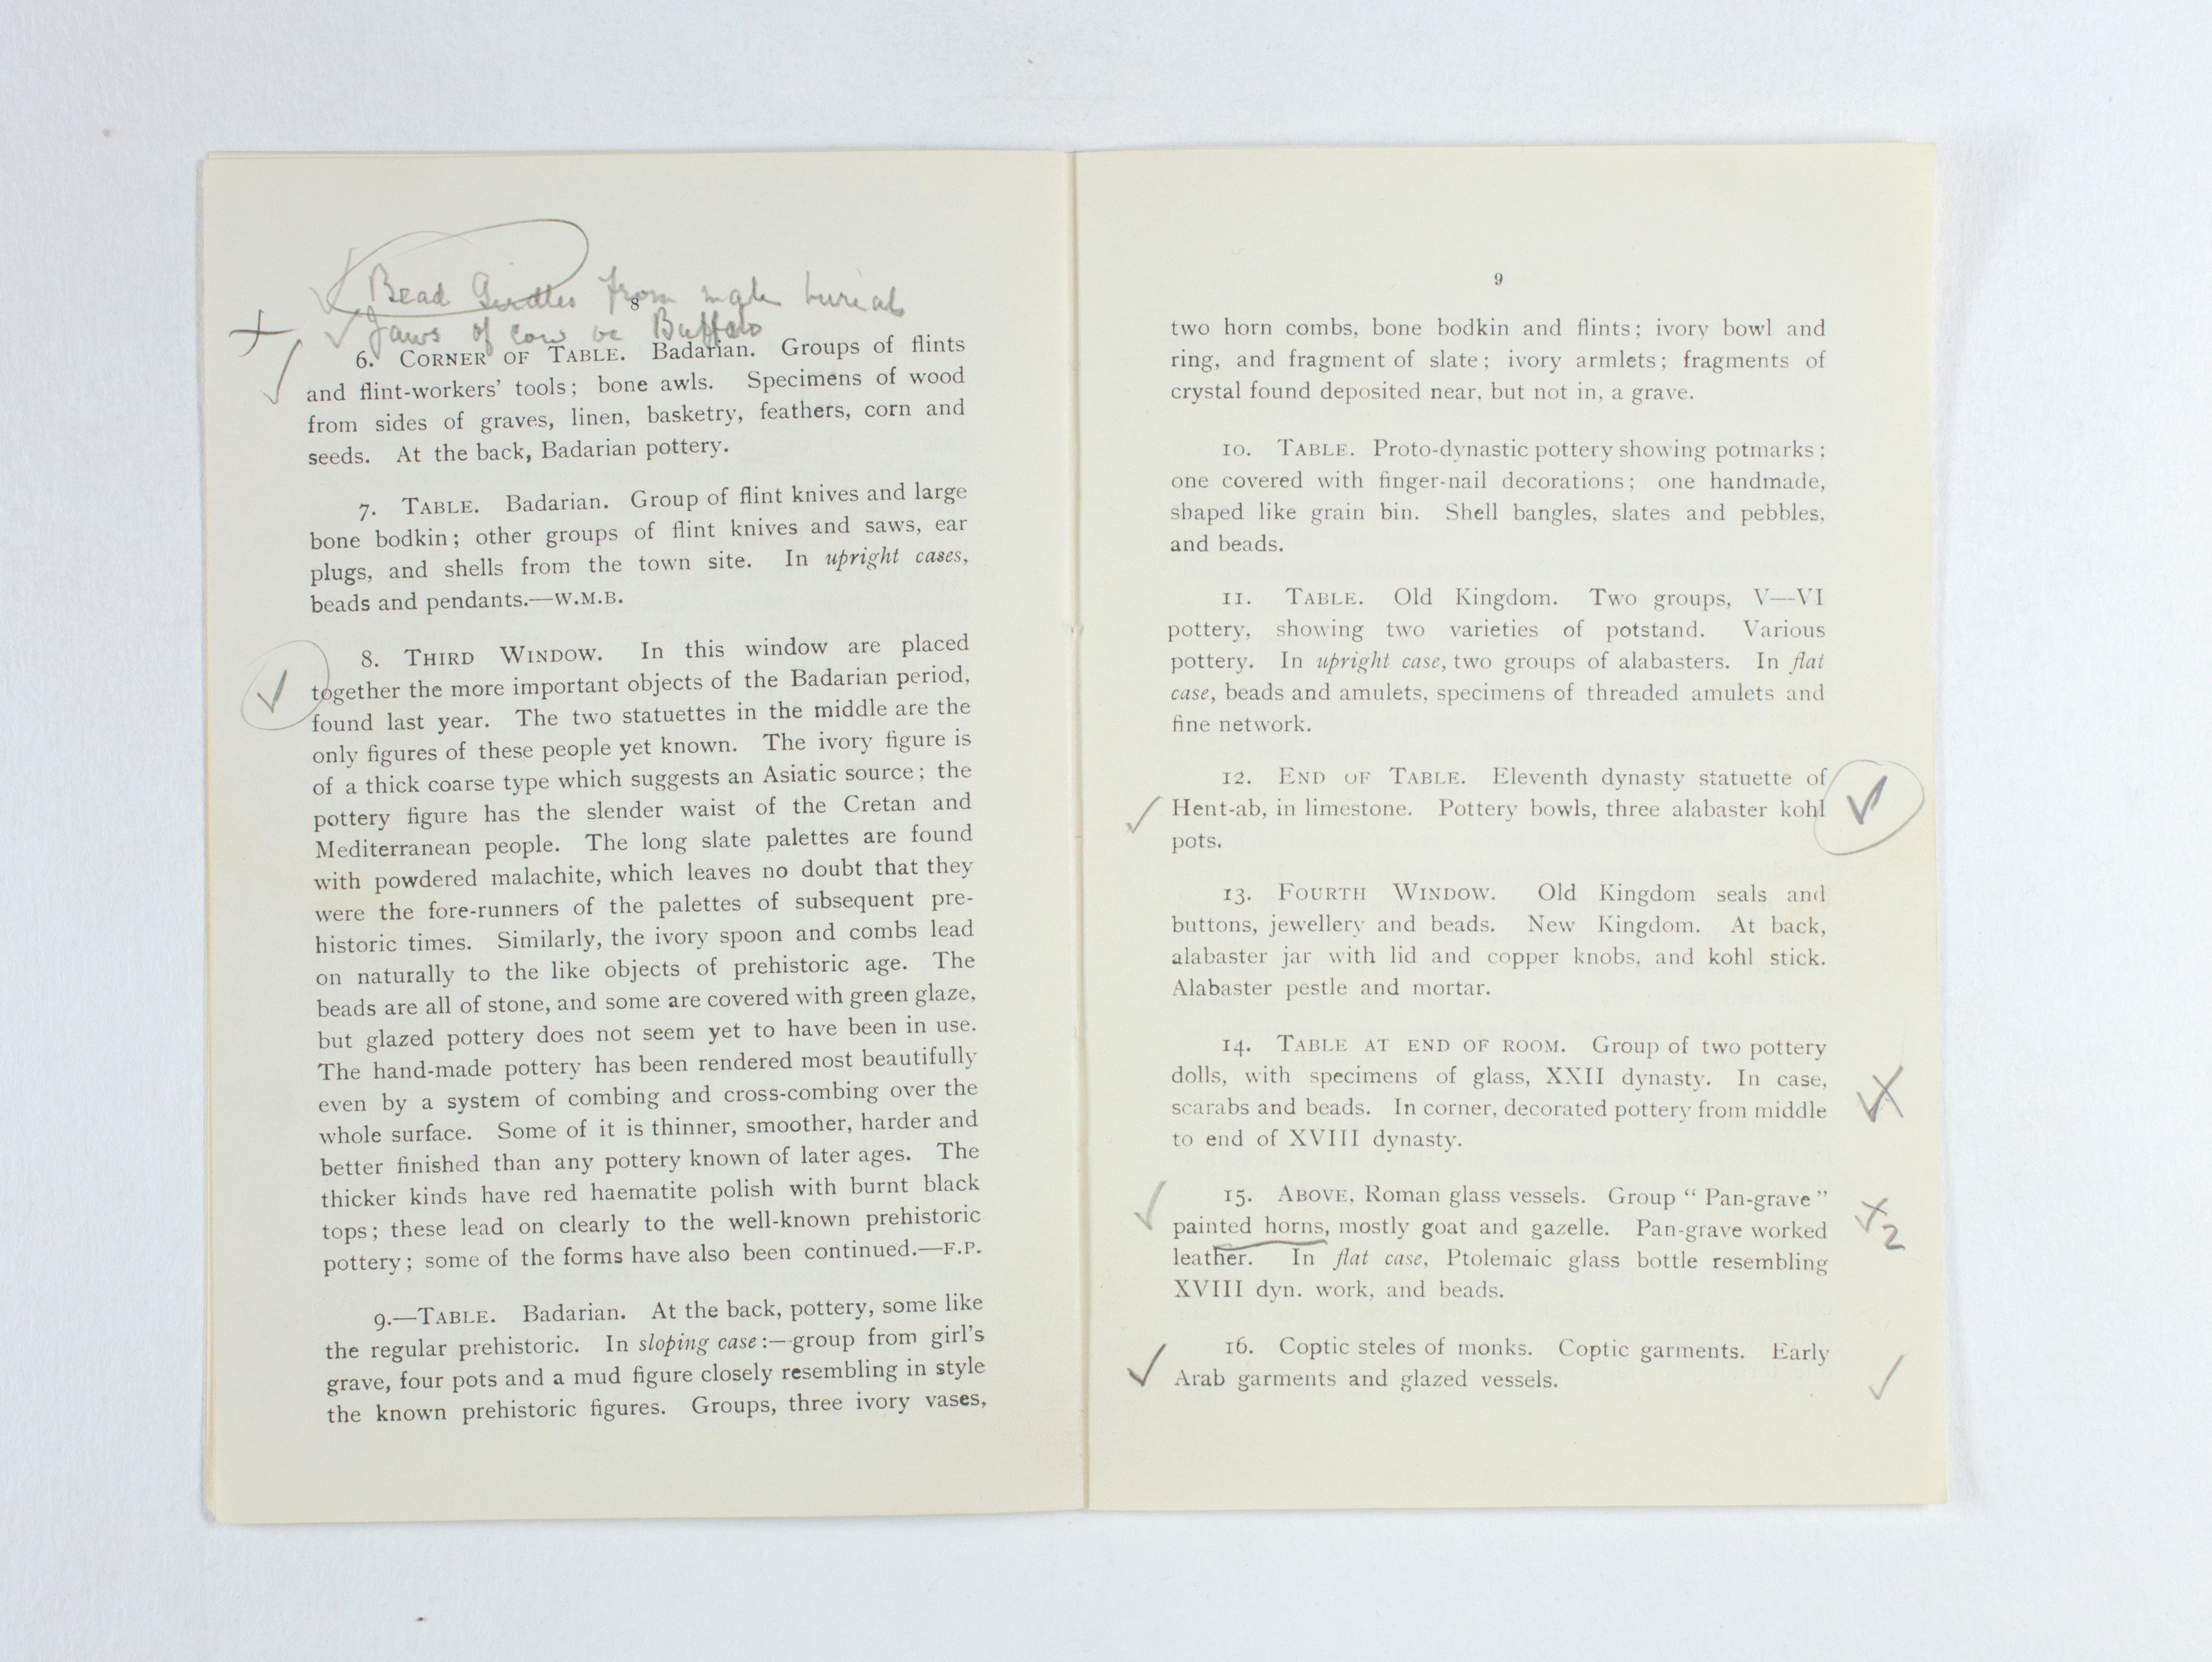 Bead Girdles from male burials
8
Jaws of cow or Buffalo
6. CORNER OF TABLE. Badarian. Groups of flints
and flint-workers' tools; bone awls. Specimens of wood
from sides of graves, linen, basketry, feathers, corn and
seeds. At the back, Badarian pottery.
7. TABLE. Badarian. Group of flint knives and large
bone bodkin; other groups of flint knives and saws, ear
plugs, and shells from the town site. In upright cases,
beads and pendants.—W.M.B.
8. THIRD WINDOW. In this window are placed
together the more important objects of the Badarian period,
found last year. The two statuettes in the middle are the
only figures of these people yet known. The ivory figure is
of a thick coarse type which suggests an Asiatic source; the
pottery figure has the slender waist of the Cretan and
Mediterranean people. The long slate palettes are found
with powdered malachite, which leaves no doubt that they
were the fore-runners of the palettes of subsequent pre-
historic times. Similarly, the ivory spoon and combs lead
on naturally to the like objects of prehistoric age. The
beads are all of stone, and some are covered with green glaze,
but glazed pottery does not seem yet to have been in use.
The hand-made pottery has been rendered most beautifully
even by a system of combing and cross-combing over the
whole surface. Some of it is thinner, smoother, harder and
better finished than any pottery known of later ages. The
thicker kinds have red haematite polish with burnt black
tops; these lead on clearly to the well-known prehistoric
pottery; some of the forms have also been continued.—F.P.
9.—TABLE. Badarian. At the back, pottery, some like
the regular prehistoric. In sloping case:—group from girl's
grave, four pots and a mud figure closely resembling in style
the known prehistoric figures. Groups, three ivory vases,
9
two horn combs, bone bodkin and flints; ivory bowl and
ring, and fragment of slate; ivory armlets; fragments of
crystal found deposited near, but not in, a grave.
10. TABLE. Proto-dynastic pottery showing potmarks;
one covered with finger-nail decorations; one handmade,
shaped like grain bin. Shell bangles, slates and pebbles,
and beads.
11. TABLE. Old Kingdom. Two groups, V—VI
pottery, showing two varieties of potstand. Various
pottery. In upright case, two groups of alabasters. In flat
case, beads and amulets, specimens of threaded amulets and
fine network.
12. END OF TABLE. Eleventh dynasty statuette of
Hent-ab, in limestone. Pottery bowls, three alabaster kohl
pots.
13. FOURTH WINDOW. Old Kingdom seals and
buttons, jewellery and beads. New Kingdom. At back,
alabaster jar with lid and copper knobs, and kohl stick.
Alabaster pestle and mortar.
14. TABLE AT END OF ROOM. Group of two pottery
dolls, with specimens of glass, XXII dynasty. In case,
scarabs and beads. In corner, decorated pottery from middle
to end of XVIII dynasty.
15. ABOVE, Roman glass vessels. Group "Pan-grave"
painted horns, mostly goat and gazelle. Pan-grave worked
2
leather. In flat case, Ptolemaic glass bottle resembling
XVIII dyn. work, and beads.
16. Coptic steles of monks. Coptic garments. Early
Arab garments and glazed vessels.